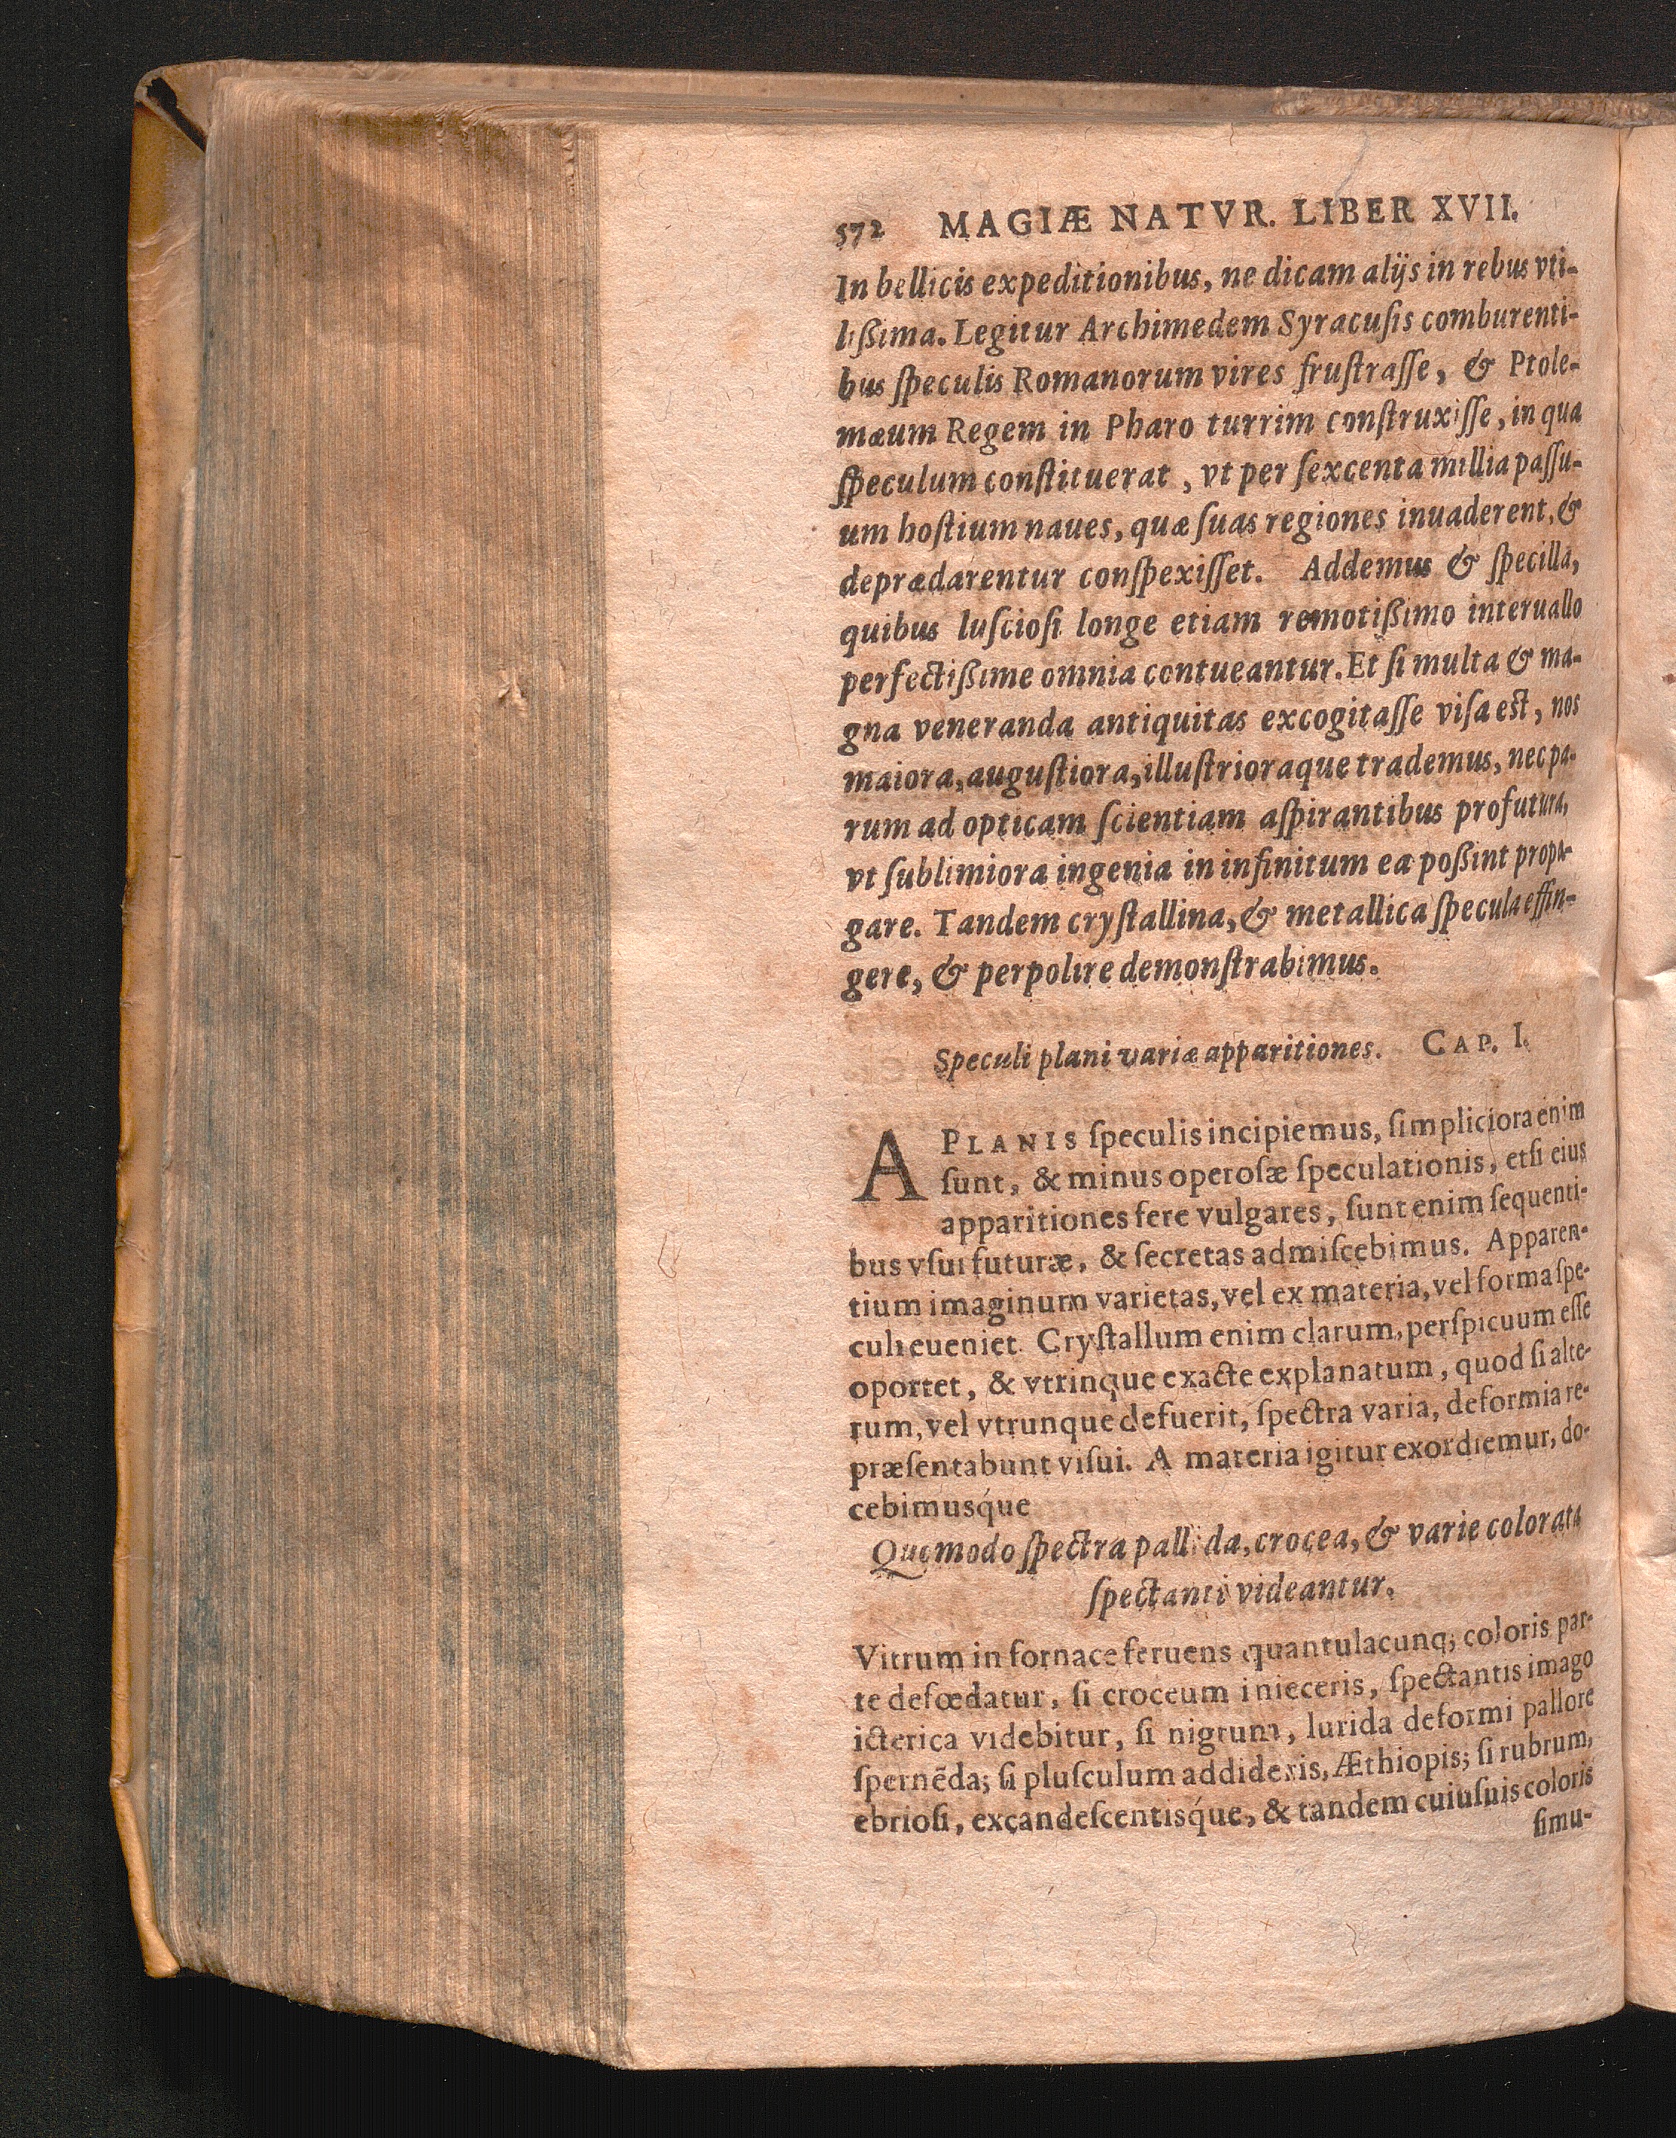 572 MAGIÆ NATVR. LIBER XVII.
In bellicis expeditionibus, ne dicam alijs in rebus vti-
lißima. Legitur Archimedem Syracuſis comburenti-
bus ſpeculis Romanorum vires fruſtraſſe, & Ptole-
mæum Regem in Pharo turrim conſtruxiſſe, in qua
ſpeculum conſtituerat, vt per ſexcenta millia paſſu-
um hoſtium naues, quæ ſuas regiones inuaderent, &
deprædarentur conſpexiſſet. Addemus & ſpecilla,
quibus luſcioſi longe etiam remotißimo interuallo
perfectißime omnia contueantur. Et ſi multa & ma-
gna veneranda antiquitas excogitaſſe viſa est, nos
maiora, auguſtiora, illuſtrioraque trademus, nec pa-
rum ad opticam ſcientiam aſpirantibus profutura,
vt ſublimiora ingenia in infinitum ea poßint propa-
gare. Tandem cryſtallina, & metallica ſpecula effin-
gere, & perpolire demonſtrabimus.
Speculi plani variæ apparitiones. CAP. I.
A PLANIS ſpeculis incipiemus, ſimpliciora enim
ſunt, & minus operoſæ ſpeculationis, etſi eius
apparitiones fere vulgares, ſunt enim ſequenti-
bus vſui futuræ, & ſecretas admiſcebimus. Apparen-
tium imaginum varietas, vel ex materia, vel forma ſpe-
culi eueniet. Cryſtallum enim clarum, perſpicuum eſſe
oportet, & vtrinque exacte explanatum, quod ſi alte-
rum, vel vtrunque defuerit, ſpectra varia, deformia re-
præſentabunt viſui. A materia igitur exordiemur, do-
cebimusq́ue
Quomodo ſpectra pallida, crocea, & varie colorata
ſpectanti videantur.
Vitrum in fornace feruens quantulacunq; coloris par-
te defœdatur, ſi croceum inieceris, ſpectantis imago
icterica videbitur, ſi nigrum, lurida deformi pallore
ſpernẽda; ſi pluſculum addideris, Æthiopis; ſi rubrum,
ebrioſi, excandeſcentisq́ue, & tandem cuiuſuis coloris
ſimu-